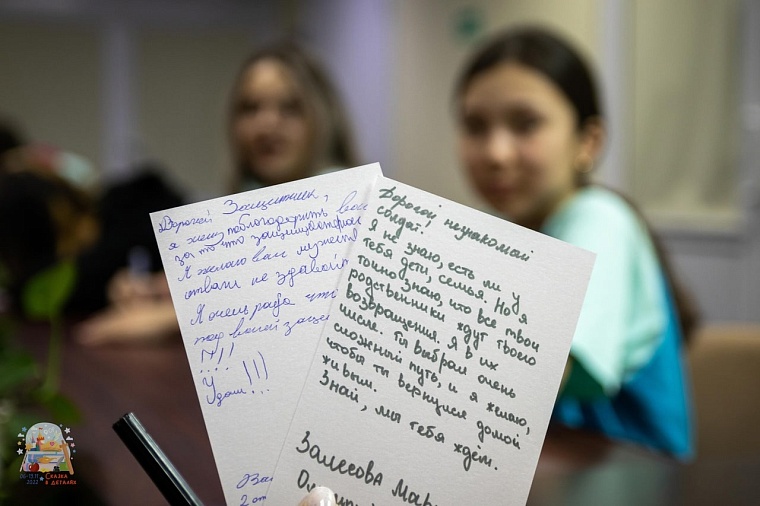 Дорогой Защитник,
я хочу поблагодарить вас
за то что защищаете
Я желаю вам мужества
отваги не
Я очень рада что
под вашей
!!!
Удачи!!!
2
Дорогой незнакомый
солдат!
Я не знаю, есть ли у
тебя дети, семья. Но я
точно знаю, что все твои
родственники ждут твоего
возвращения. Я в их
числе. Ты выбрал очень
сложный путь, и я желаю,
чтобы ты вернулся домой
живым.
Знай, мы тебя ждем.
Залесова
06-13.11
2022
Сказка
в деталях